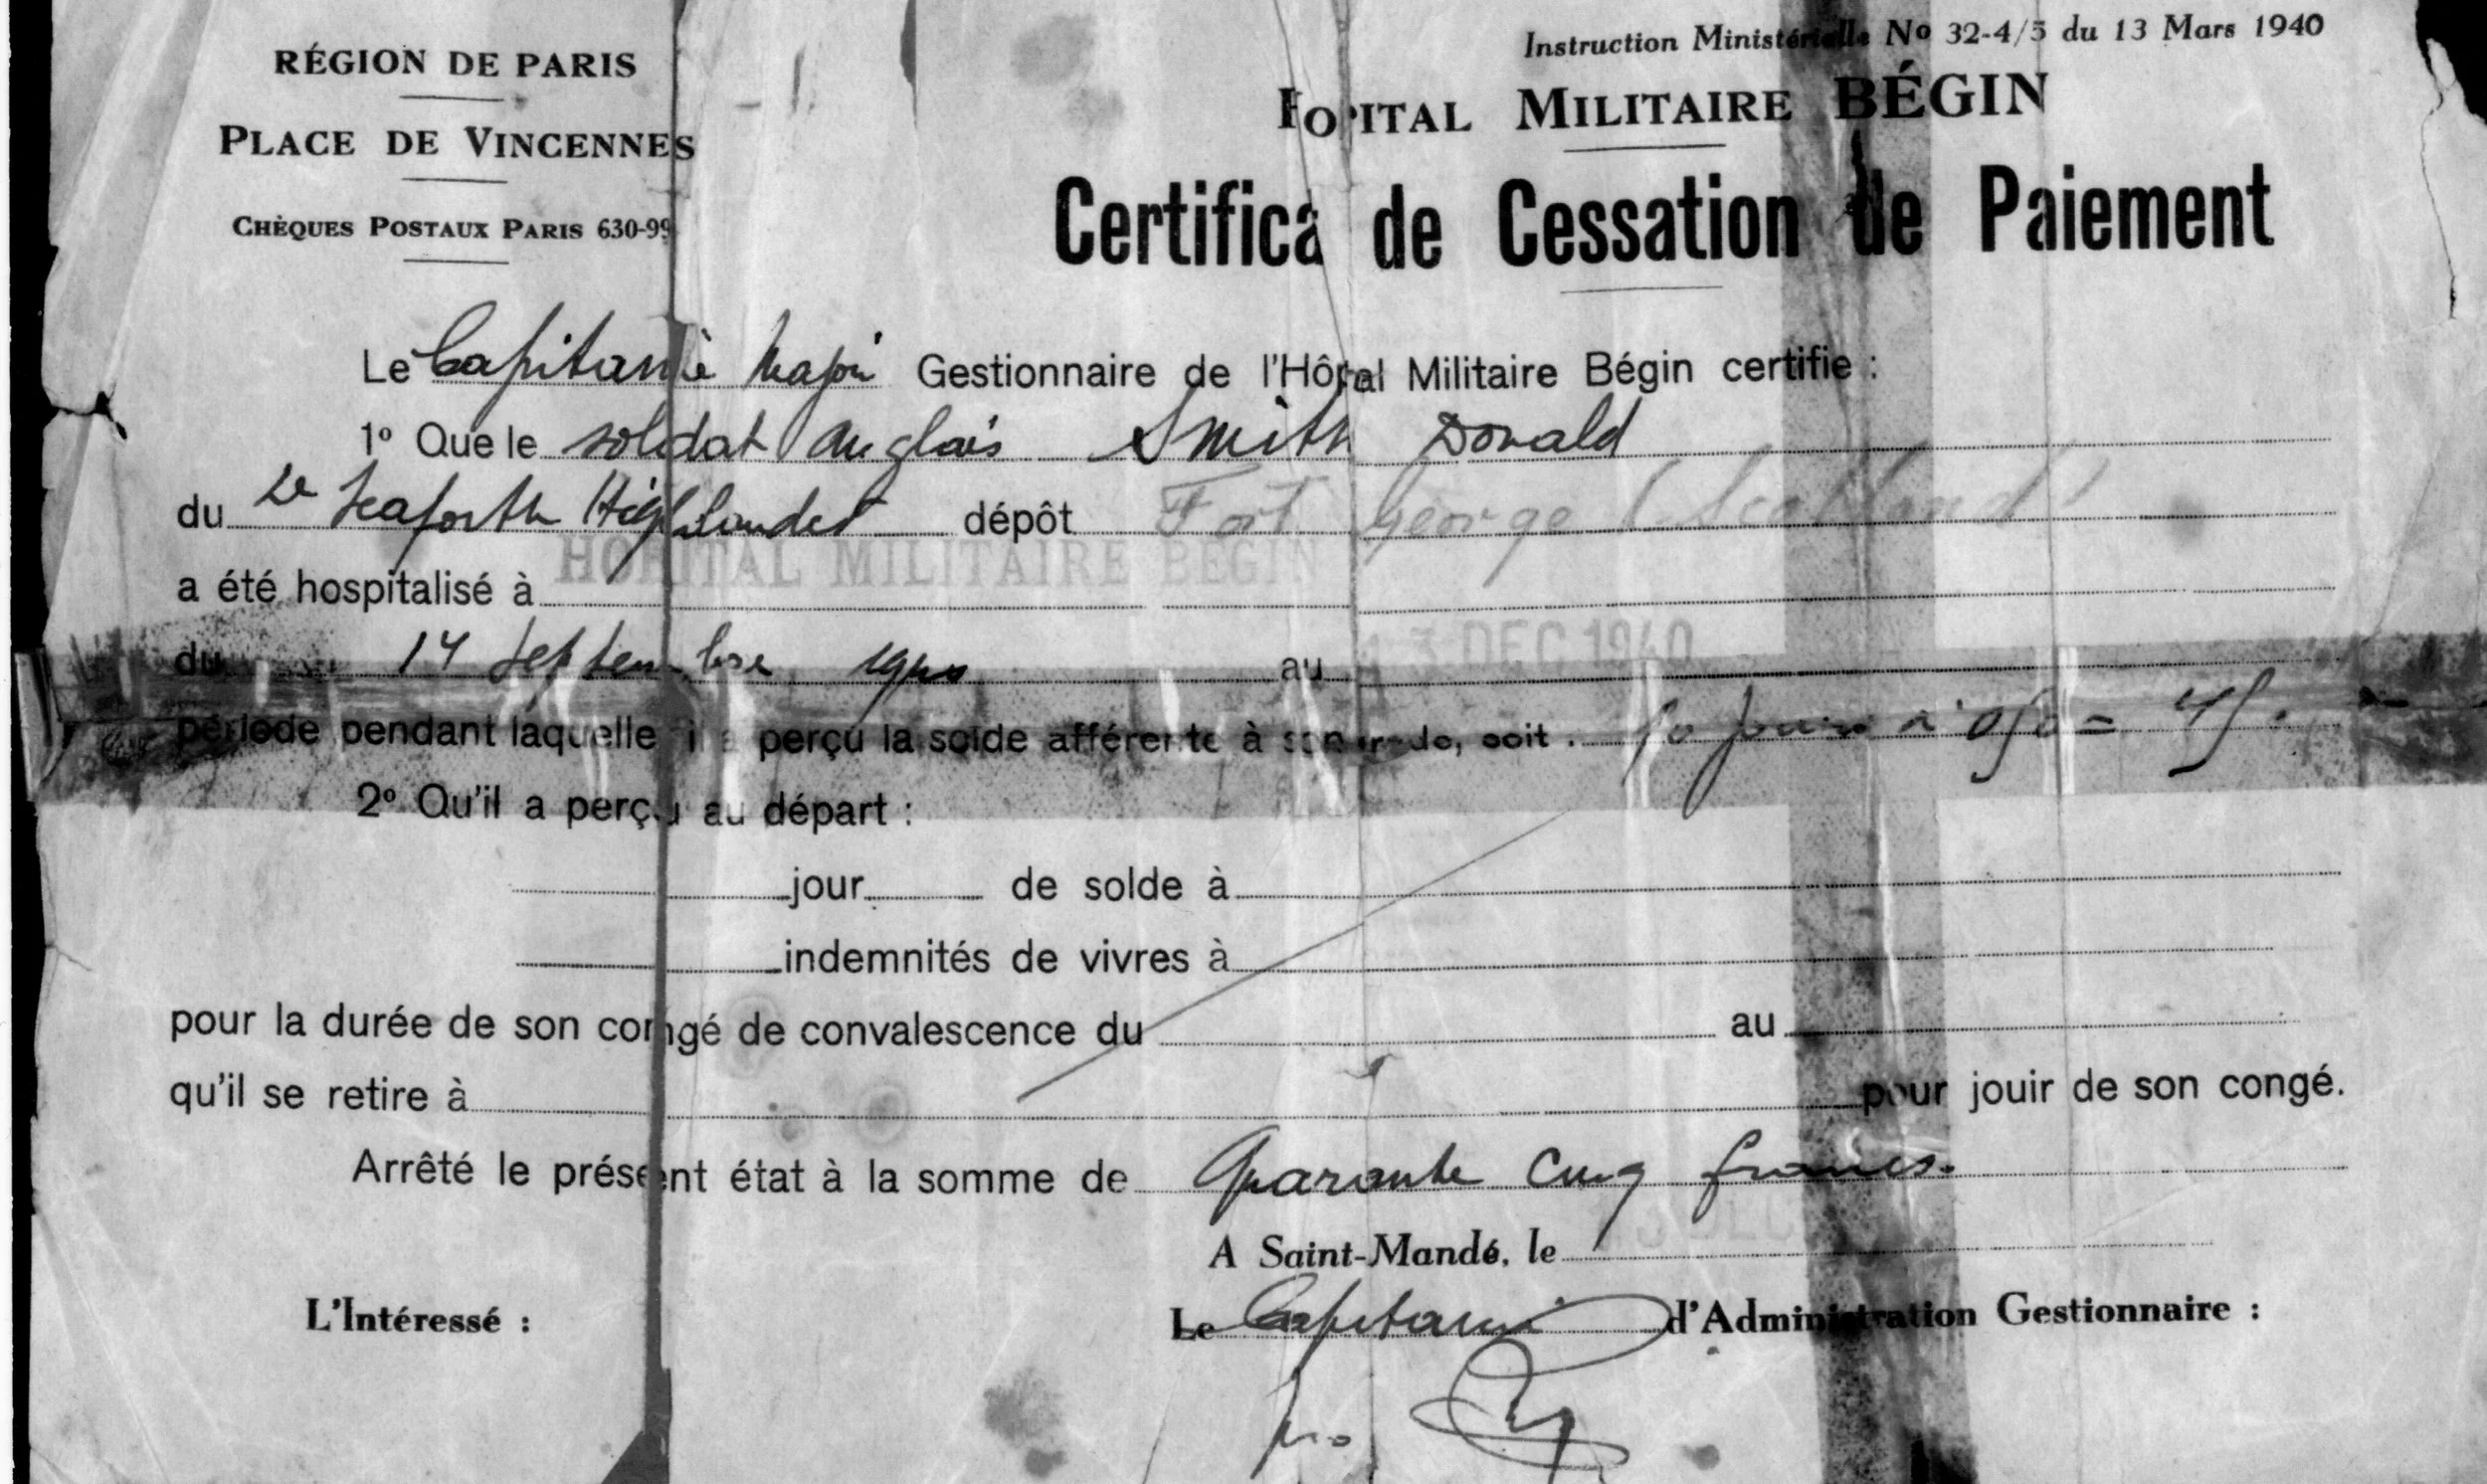 RÉGION DE PARIS
PLACE DE VINCENNES
CHÈQUES POSTAUX PARIS 630-99
Instruction Ministérielle No 32-4/5 du 13 Mars 1940
HOPITAL MILITAIRE BÉGIN
Certifica de Cessation de Paiement
Le Capitaine Major Gestionnaire de l'Hôpital Militaire Bégin certifie :
1o Que le soldat anglais Smith Donald
du 2e Seaforth Highlanders dépôt Fort George (Scotland)
a été hospitalisé à HOPITAL MILITAIRE BEGIN
du 14 Septembre 1940 au 13 DEC 1940
période pendant laquelle il a perçu la solde afférente à son grade, soit : 90 jours à 0,50 = 45.
2o Qu'il a perçu au départ :
jour de solde à
indemnités de vivres à
pour la durée de son congé de convalescence du au
qu'il se retire à pour jouir de son congé.
Arrêté le présent état à la somme de Quarante Cinq francs.
A Saint-Mandé, le 3 DEC
L'Intéressé :
Le Capitaine d'Administration Gestionnaire :